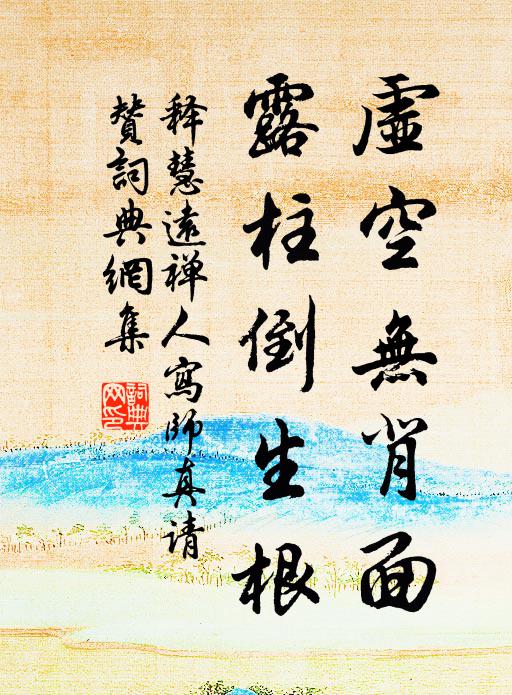 虛空無背面
露柱倒生根
释慧遠禅人寫師真请
贊詞典網集
詞典網印